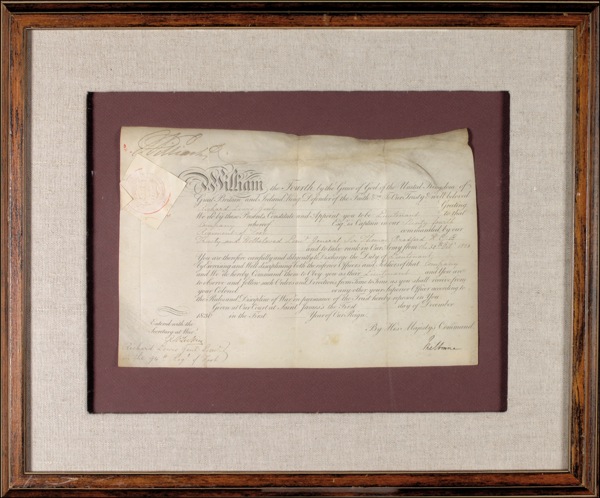 William
William the Fourth by the Grace of God of the United Kingdom of
Great Britain and Ireland King, Defender of the Faith &c. To Our Trusty & well beloved
Richard Greeting
We do by these Presents Constitute and Appoint you to be Lieutenant to that
Company whereof Esq. is Captain in our
Regiment of Foot commanded by our
Trusty and Wellbeloved Lieut. General Sir Thomas Bradford
and to take rank in Our Army from the
You are therefore carefully and diligently to discharge the Duty of Lieutenant
by exercising and Well disciplining both the inferior Officers and Soldiers of that Company
and We do hereby Command Them to Obey you as their Lieutenant and You are
to observe and follow such Orders and Directions from Time to Time as you shall receive from
your Colonel or any other your Superior Officer according to
the Rules and Discipline of War in pursuance of the Trust hereby reposed in You
Given at Our Court at Saint James's the First day of December
1830 in the First Year of Our Reign
By His Majesty's Command
Melbourne
Entered with the
Secretary at War
Richard
the Regt. of Foot